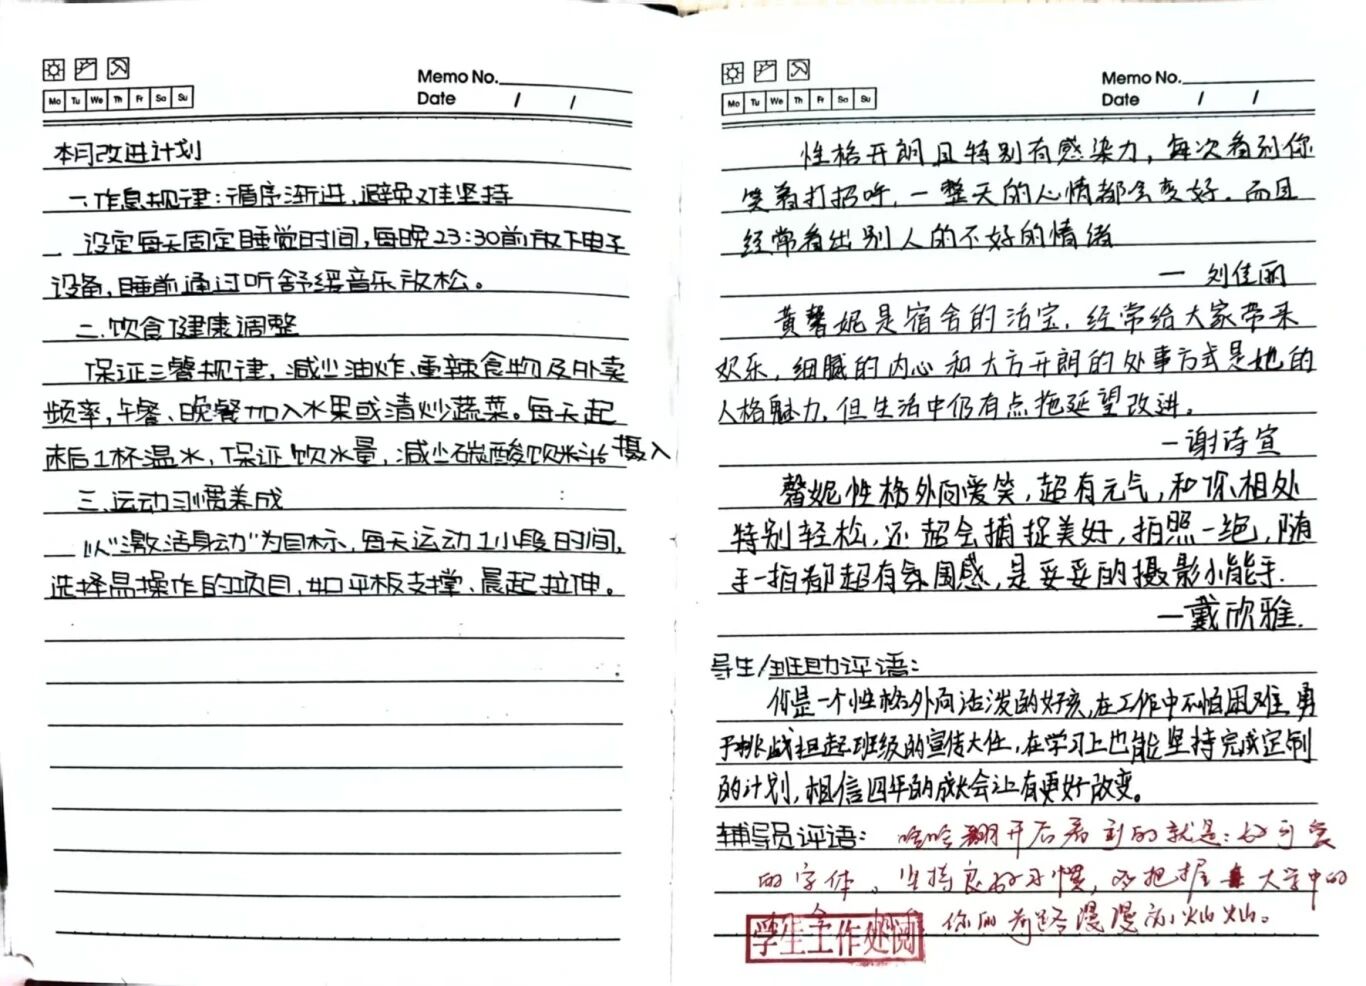 Memo No.
Mo Tu We Th Fr Sa Su
Date / /
本月改进计划
一.作息规律:循序渐进,避免难坚持
设定每天固定睡觉时间,每晚23:30前放下电子
设备,睡前通过听舒缓音乐放松。
二.饮食健康调整
保证三餐规律,减少油炸、重辣食物及外卖
频率,午餐、晚餐加入水果或清炒蔬菜。每天起
床后1杯温水,保证饮水量,减少碳酸饮料摄入
三.运动习惯养成
以“激活身动”为目标,每天运动1小段时间,
选择易操作的项目,如平板支撑、晨起拉伸。
Memo No.
Mo Tu We Th Fr Sa Su
Date / /
性格开朗且特别有感染力,每次看到你
笑着打招呼,一整天的心情都会变好。而且
经常看出别人的不好的情绪
— 刘佳丽
黄馨妮是宿舍的活宝,经常给大家带来
欢乐,细腻的内心和大方开朗的处事方式是她的
人格魅力,但生活中仍有点拖延望改进。
—谢诗宣
馨妮性格外向爱笑,超有元气,和你相处
特别轻松,还超会捕捉美好,拍照一绝,随
手一拍都超有氛围感,是妥妥的摄影小能手.
—戴欣雅.
导生/班助评语:
你是一个性格外向活泼的好孩,在工作中不怕困难,勇
于挑战担起班级的宣传大任,在学习上也能坚持完成定制
的计划,相信四年的成长会让有更好改变。
辅导员评语:哈哈翻开后看到的就是:好可爱
的字体。坚持良好习惯,把握大学中的
你的前路漫漫亦灿灿。
学生工作处阅